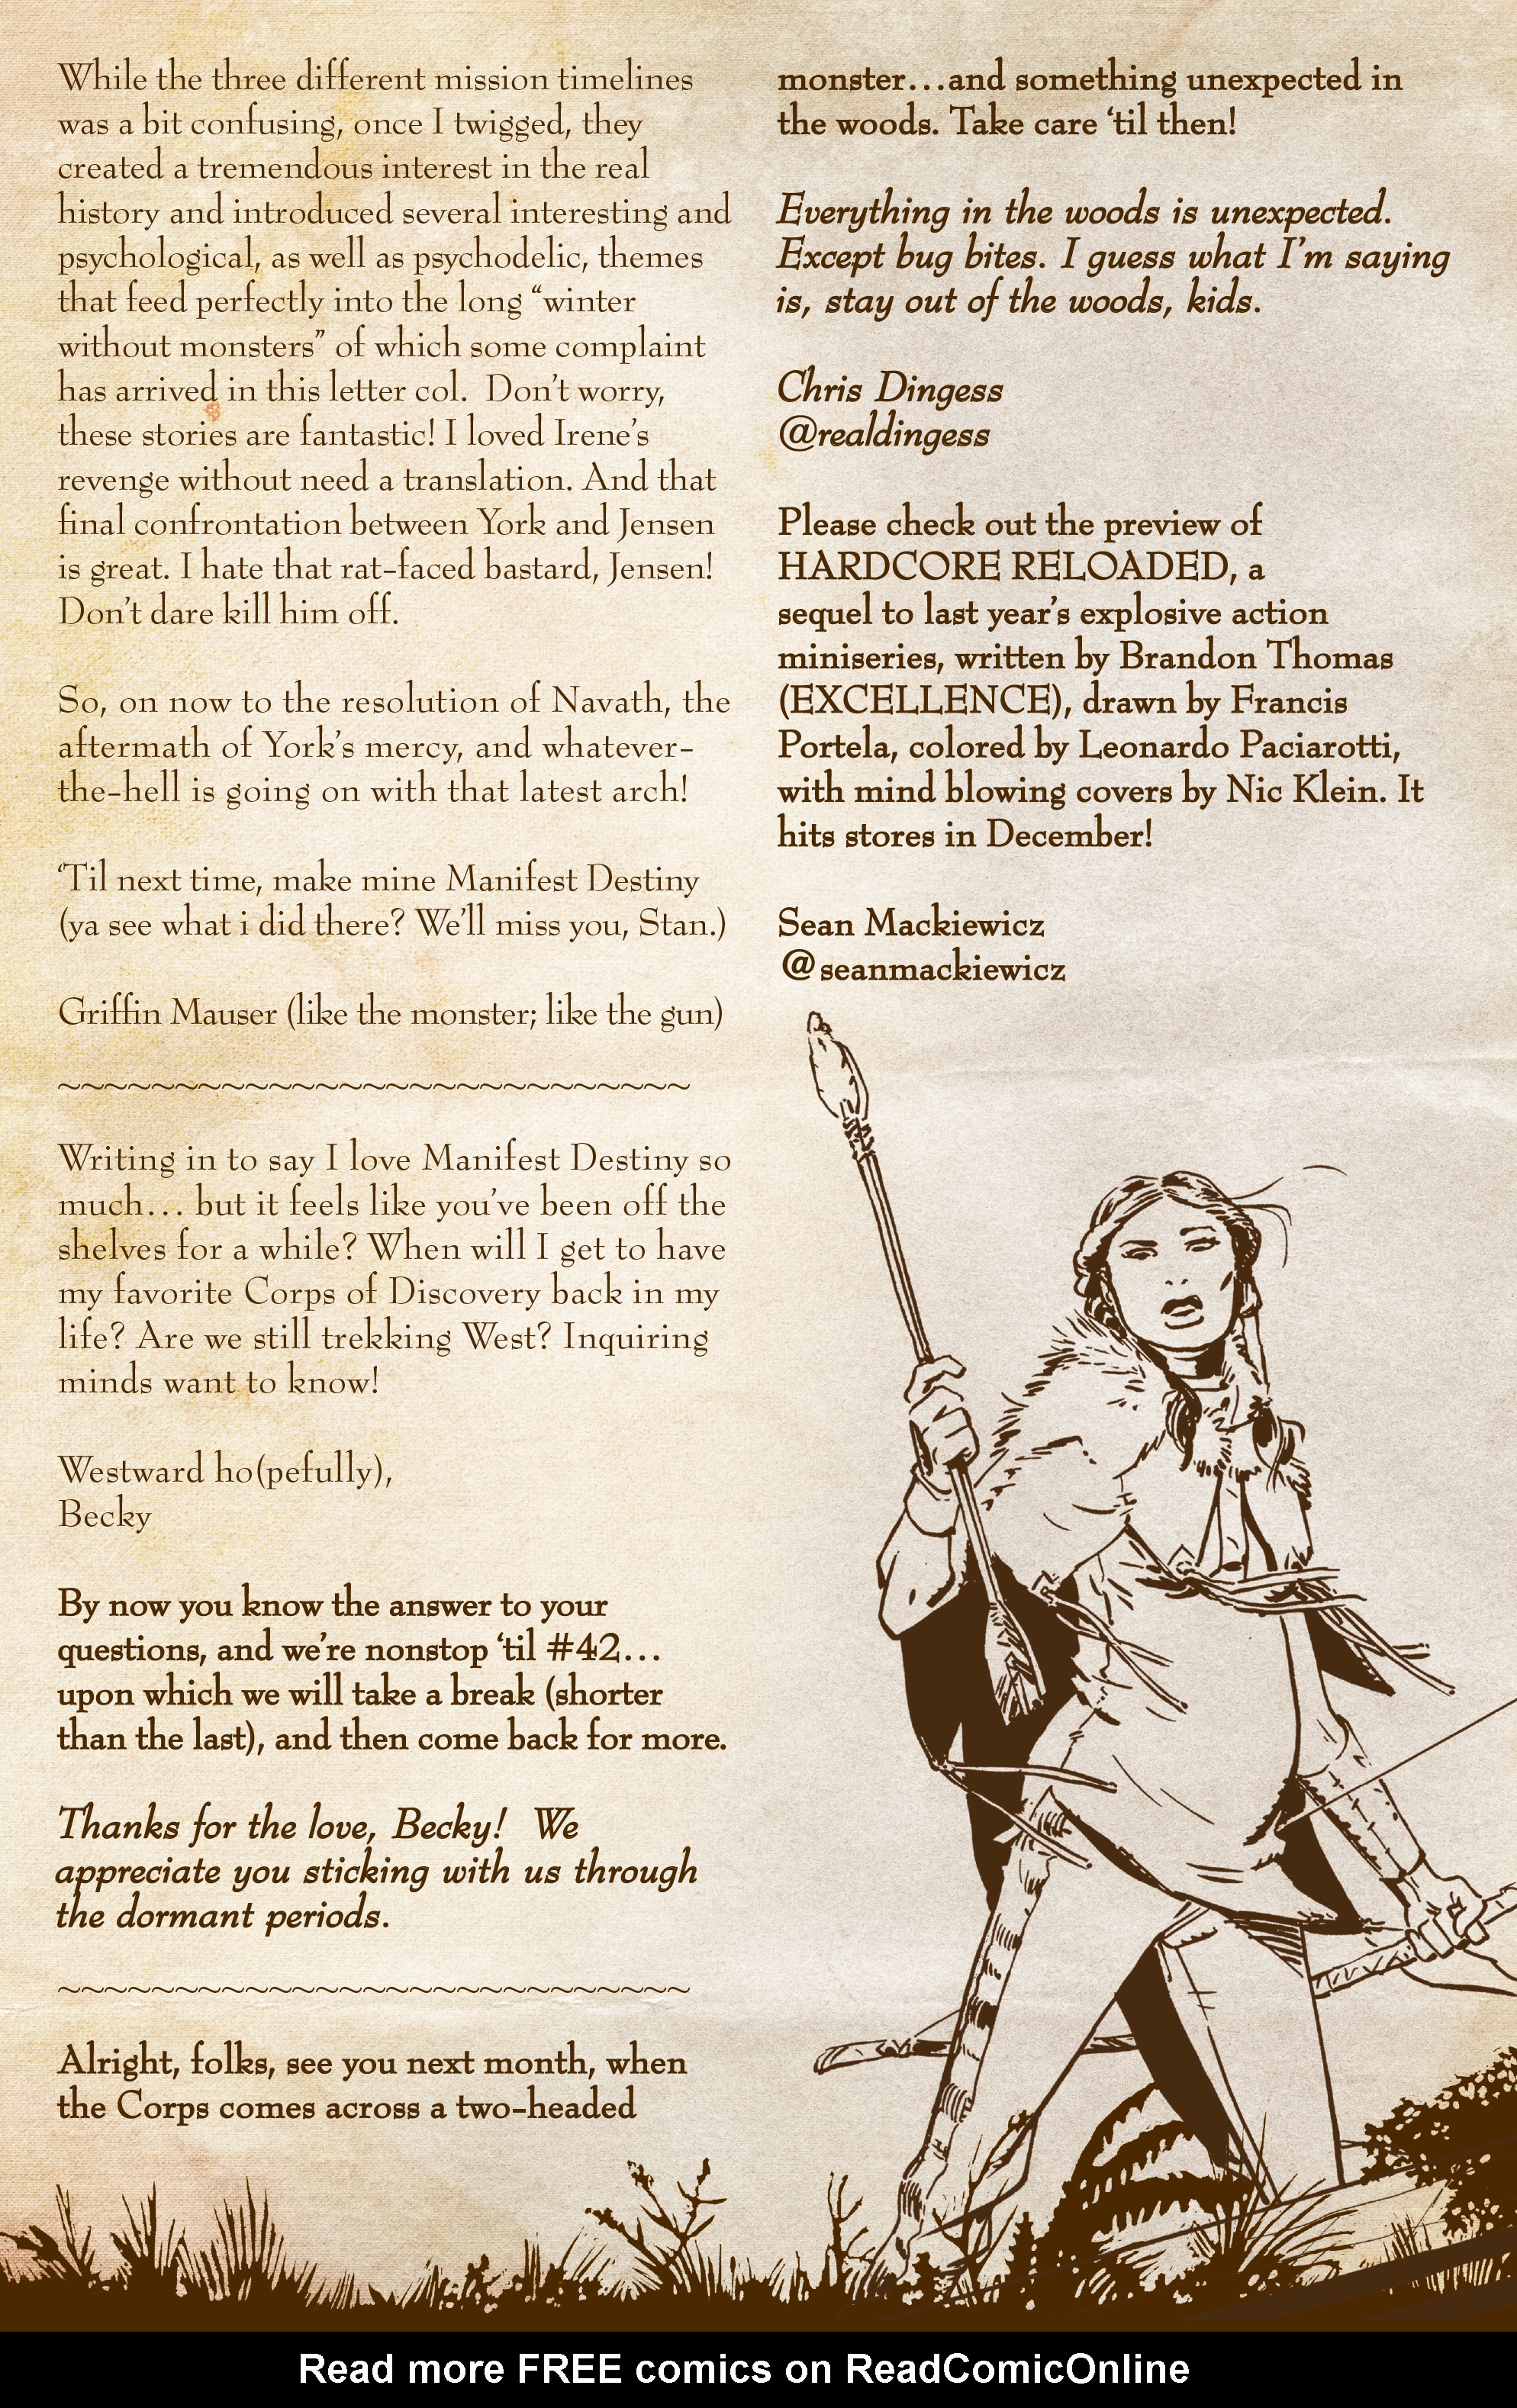 While the three different mission timelines
was a bit confusing, once I twigged, they
created a tremendous interest in the real
history and introduced several interesting and
psychological, as well as psychodelic, themes
that feed perfectly into the long “winter
without monsters” of which some complaint
has arrived in this letter col.  Don’t worry,
these stories are fantastic! I loved Irene’s
revenge without need a translation. And that
final confrontation between York and Jensen
is great. I hate that rat-faced bastard, Jensen!
Don’t dare kill him off.
So, on now to the resolution of Navath, the
aftermath of York’s mercy, and whatever-
the-hell is going on with that latest arch!
‘Til next time, make mine Manifest Destiny
(ya see what i did there? We’ll miss you, Stan.)
Griffin Mauser (like the monster; like the gun)
~~~~~~~~~~~~~~~~~~~~~~~~~~~
Writing in to say I love Manifest Destiny so
much… but it feels like you’ve been off the
shelves for a while? When will I get to have
my favorite Corps of Discovery back in my
life? Are we still trekking West? Inquiring
minds want to know!
Westward ho(pefully),
Becky
By now you know the answer to your
questions, and we’re nonstop ‘til #42…
upon which we will take a break (shorter
than the last), and then come back for more.
Thanks for the love, Becky!  We
appreciate you sticking with us through
the dormant periods.
~~~~~~~~~~~~~~~~~~~~~~~~~~~
Alright, folks, see you next month, when
the Corps comes across a two-headed
monster…and something unexpected in
the woods. Take care ‘til then!
Everything in the woods is unexpected.
Except bug bites. I guess what I’m saying
is, stay out of the woods, kids.
Chris Dingess
@realdingess
Please check out the preview of
HARDCORE RELOADED, a
sequel to last year’s explosive action
miniseries, written by Brandon Thomas
(EXCELLENCE), drawn by Francis
Portela, colored by Leonardo Paciarotti,
with mind blowing covers by Nic Klein. It
hits stores in December!
Sean Mackiewicz
@seanmackiewicz
Read more FREE comics on ReadComicOnline